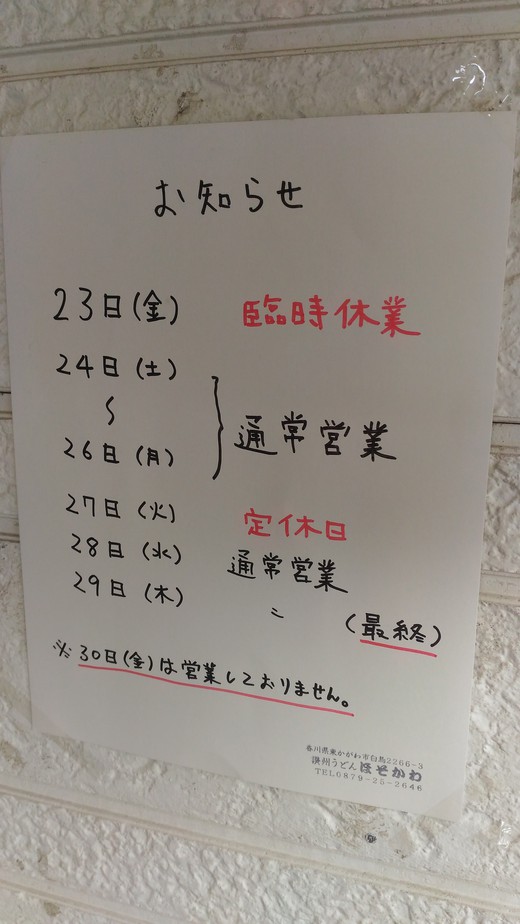 お知らせ
23日(金) 臨時休業
24日(土)
〜
26日(月) 通常営業
27日(火) 定休日
28日(水) 通常営業
29日(木) 〃 (最終)
※30日(金)は営業しておりません。
香川県東かがわ市白鳥2266-3
讃州うどん ほそかわ
TEL0879-25-2646